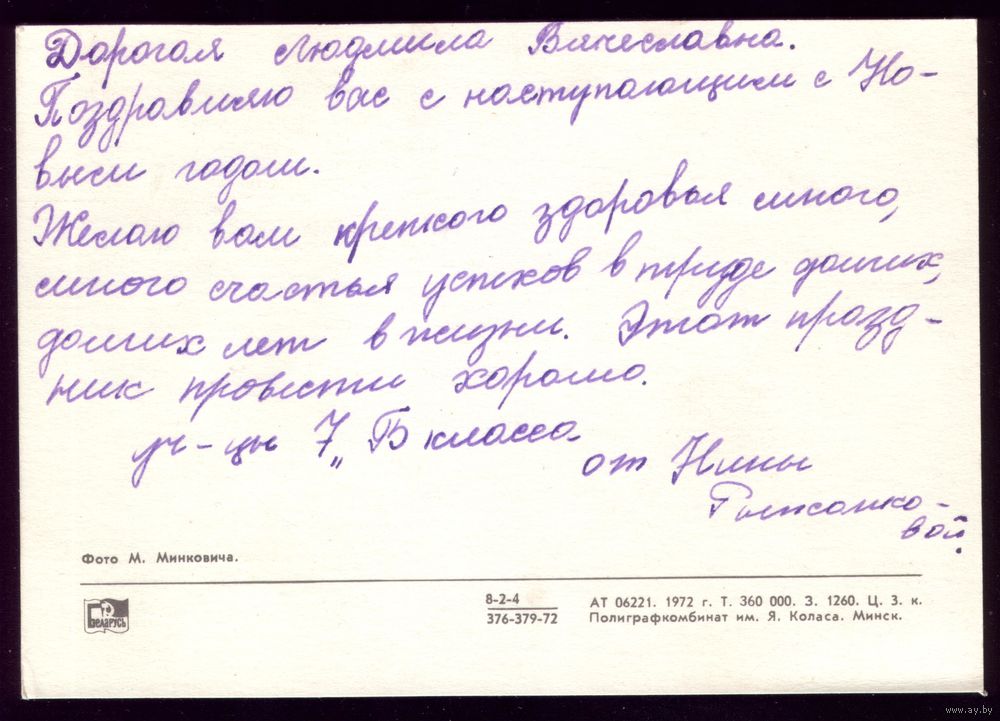 Дорогая Людмила Вячеславна.
Поздравляю вас с наступающим с Но-
вым годом.
Желаю вам крепкого здоровья много,
много счастья успехов в труде долгих,
долгих лет в жизни. Этот празд-
ник провести хорошо.
уч-цы 7 „Б класса
от Нины
вой.
Фото М. Минковича.
Беларусь
8-2-4
376-379-72
АТ 06221. 1972 г. Т. 360 000. З. 1260. Ц. 3. к.
Полиграфкомбинат им. Я. Коласа. Минск.
www.ay.by